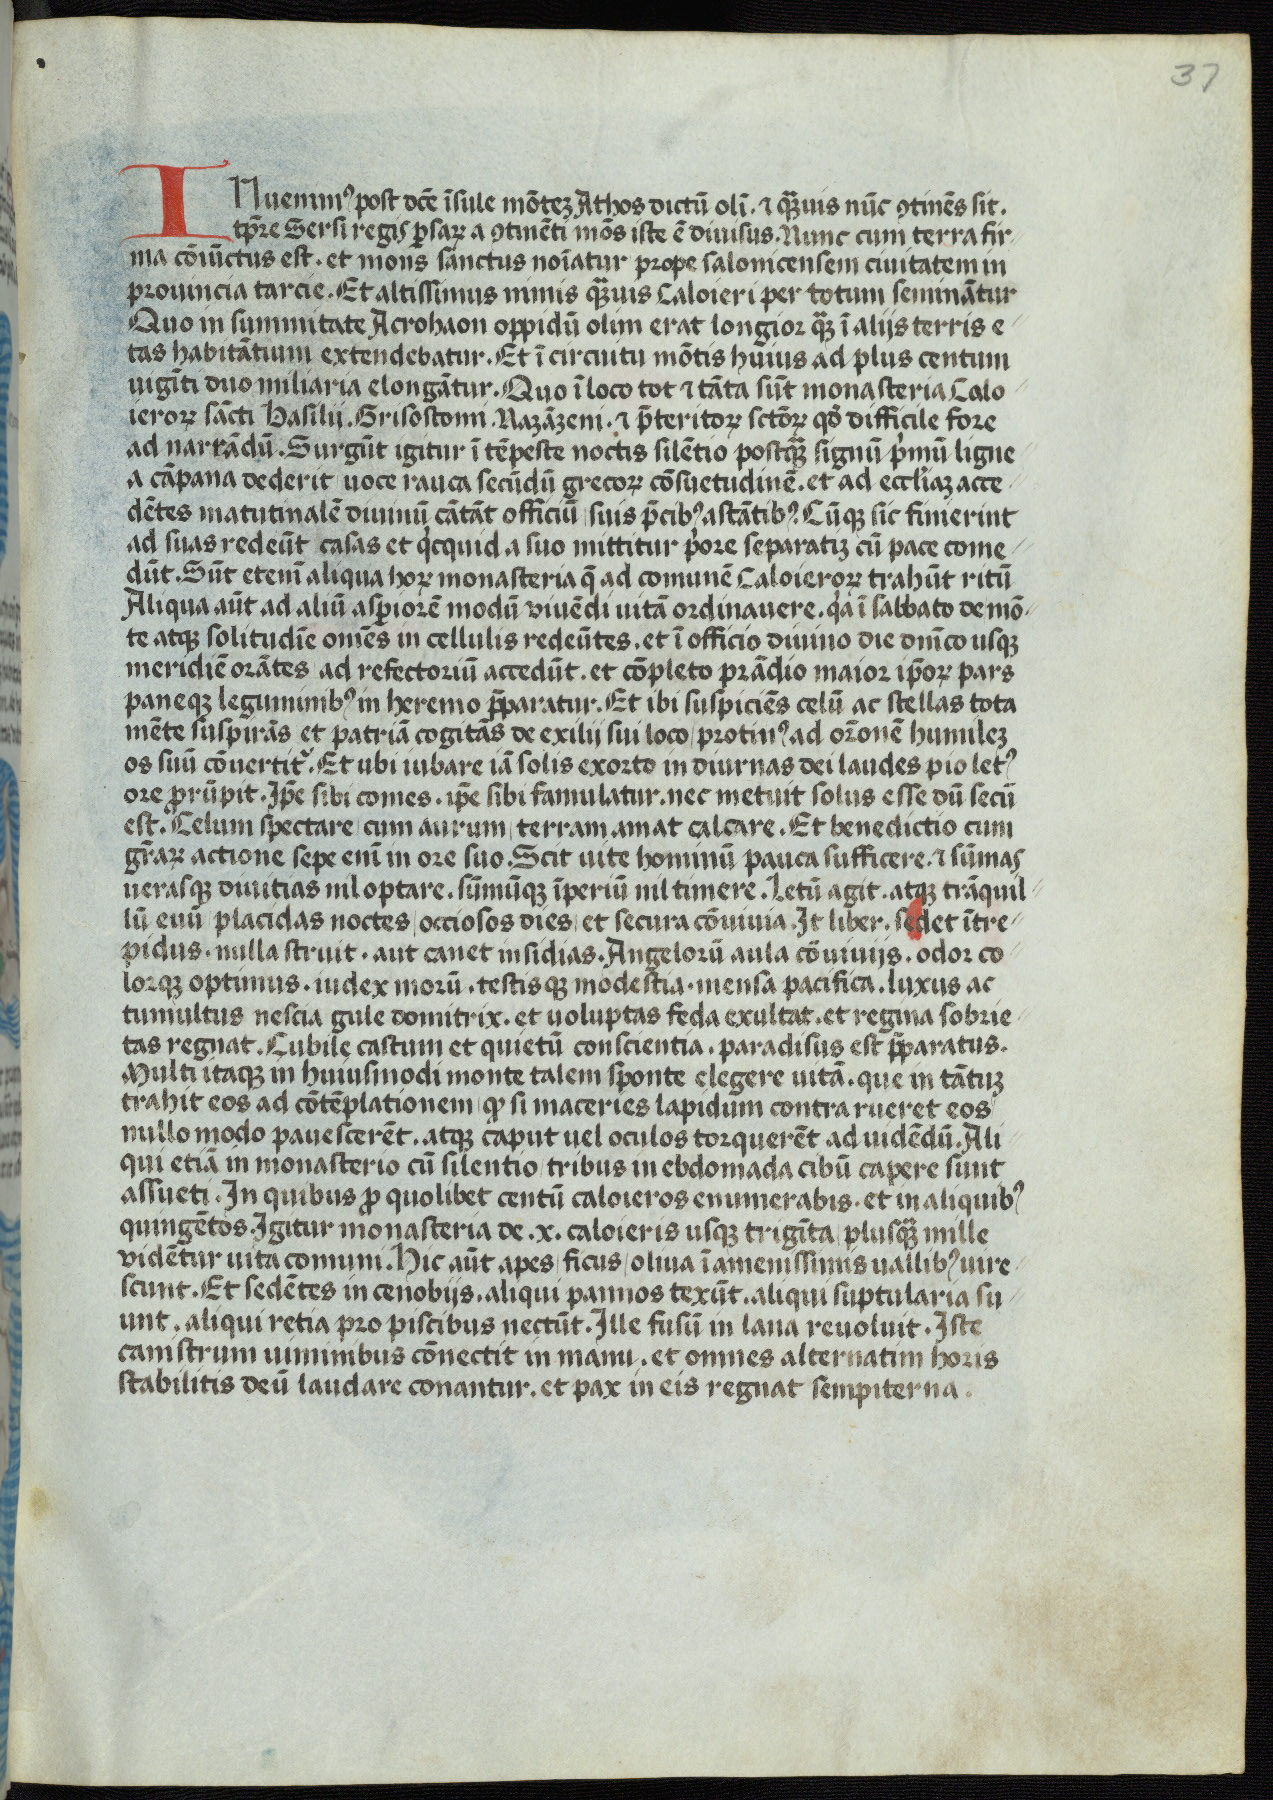 37
INuenim⁹ post dc̄e īsule mōtez Athos dictū olī. ⁊ qᷓuis nūc ꝯtinēs sit.
tꝑre Sersi regis ꝑsaꝝ a ꝯtinēti mōs iste ē diuisus. Nunc cum terra fir⸗
ma cōiūctus est. et mons sanctus noīatur prope salonicensem ciuitatem in
prouincia tarcie. Et altissimus nimis qᷓuis Caloieri per totum seminātur
Quo in summitate Acrohaon oppidū olim erat longior qᷓꝫ ī alijs terris e⸗
tas habitātium extendebatur. Et ī circuitu mōtis huius ad plus centum
uigīti duo miliaria elongātur. Quo ī loco tot ⁊ tāta sūt monasteria Calo⸗
ieroꝝ sācti Basilij. Grisostomi. Nazāzeni. ⁊ p̄teritoꝝ sctōꝝ qᵒ difficile fore
ad narrādū. Surgūt igitur ī tēpeste noctis silētio postqᷓꝫ signū pͥmū ligne
a cāpana dederit uoce rauca secūdū grecoꝝ cōsuetudinē. et ad ecclīaꝫ acce⸗
dētes matutinalē diuinū cātāt officiū suis p̄cib⁹ astātib⁹. Cūqꝫ sic finierint
ad suas redeūt casas et qͥcquid a suo mittitur pͥore separatiꝫ cū pace come⸗
dūt. Sūt etenī aliqua hoꝝ monasteria q̄ ad comunē Caloieroꝝ trahūt ritū
Aliqua aūt ad aliū asꝑiorē modū viuēdi uitā ordinauere. qͥa ī sabbato de mō⸗
te atqꝫ solitudīe omēs in cellulis redeūtes. et ī officio diuino die dnīco usqꝫ
meridiē orātes ad refectoriū accedūt. et cōpleto prādio maior ip̄oꝝ pars
paneqꝫ leguminib⁹ in heremo p̄paratur. Et ibi suspiciēs celū ac stellas tota
mēte suspirās et patriā cogitās de exilij sui loco protin⁹ ad or̄onē humileꝫ
os suū cōuertitᷣ. Et ubi iubare iā solis exorto in diurnas dei laudes pio let⁹
ore prūpit. Ip̄e sibi comes. ip̄e sibi famulatur. nec metuit solus esse dū secū
est. Celum spectare cum aurum terram amat calcare. Et benedictio cum
gr̄aꝝ actione sepe enī in ore suo. Scit uite hominū pauca sufficere. ⁊ sūmas
uerasqꝫ diuitias nil optare. sūmūqꝫ īperiū nil timere. Letū agit. atqꝫ trāquil⸗
lū euū placidas noctes occiosos dies et secura cōuiuia. It liber. sedet ītre⸗
pidus. nulla struit. aut canet insidias. Angelorū aula cōuiuijs. odor co⸗
lorqꝫ optimus. iudex morū. testisqꝫ modestia. mensa pacifica. luxus ac
tumultus nescia gule domitrix. et uoluptas feda exultat. et regina sobrie⸗
tas regnat. Cubile castum et quietū conscientia. paradisus est p̄paratus.
Multi itaqꝫ in huiusmodi monte talem sponte elegere uitā. que in tātuꝫ
trahit eos ad cōtēplationem ꝙ si maceries lapidum contra rueret eos
nullo modo pauescerēt. atqꝫ caput uel oculos torquerēt ad uidēdū. Ali⸗
qui etiā in monasterio cū silentio tribus in ebdomada cibū capere sunt
assueti. In quibus ꝓ quolibet centū caloieros enumerabis. et in aliquib⁹
quingētos. Igitur monasteria de .x. caloieris usqꝫ trigīta plusqᷓꝫ mille
vidētur uita comuni. Hic aūt apes ficus oliua ī amenissimis uallib⁹ uire⸗
scunt. Et sedētes in cenobijs. aliqui pannos texūt. aliqui suptularia su⸗
unt. aliqui retia pro piscibus nectūt. Ille fusū in lana reuoluit. Iste
canistrum uiminibus cōnectit in manu. et omnes alternatim horis
stabilitis deū laudare conantur. et pax in eis regnat sempiterna.